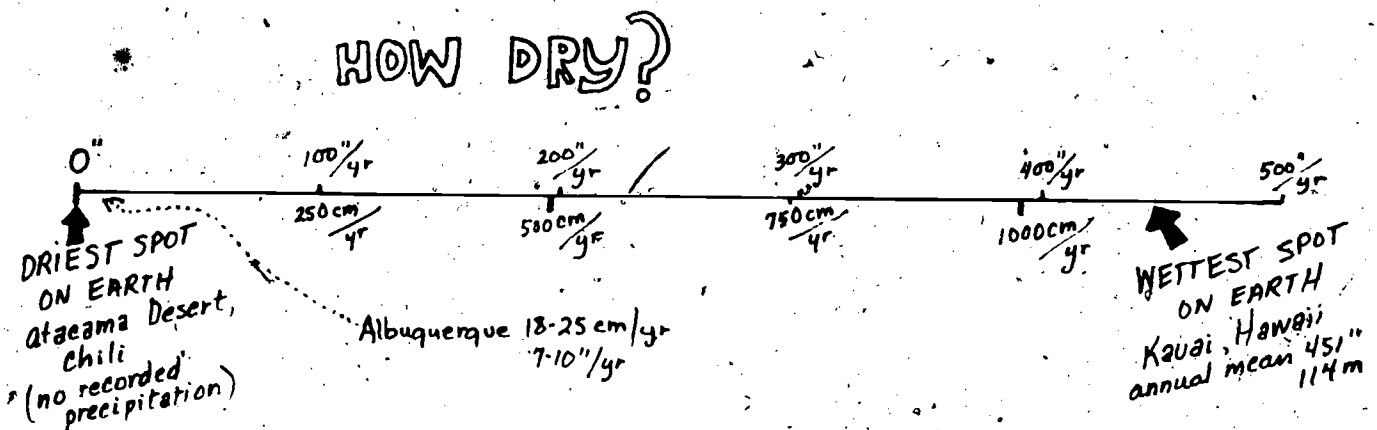 HOW DRY?
0"
100"/yr
200"/yr
300"/yr
400"/yr
500"/yr
250 cm/yr
500 cm/yr
750 cm/yr
1000 cm/yr
DRIEST SPOT
ON EARTH
atacama Desert,
Chili
(no recorded
precipitation)
Albuquerque 18-25 cm/yr
7-10"/yr
WETTEST SPOT
ON EARTH
Kauai, Hawaii
annual mean 451"
114m